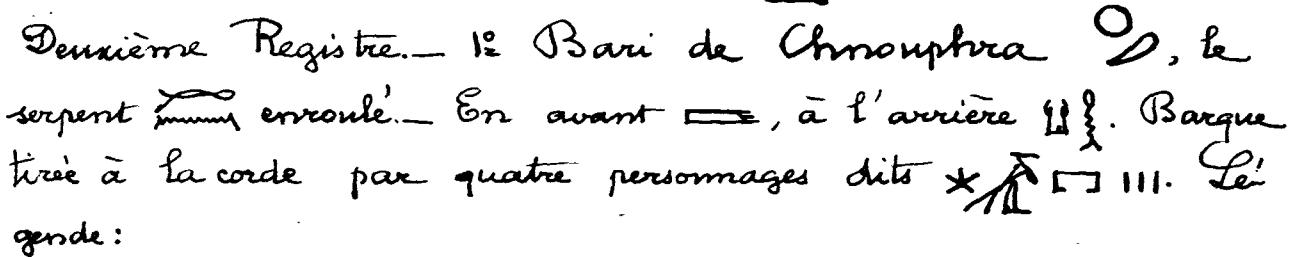 Deuxième Registre._ 1º Bari de Chnouphra, le
serpent enroulé._ En avant, à l'arrière. Barque
tirée à la corde par quatre personnages dits. Lé
gende: